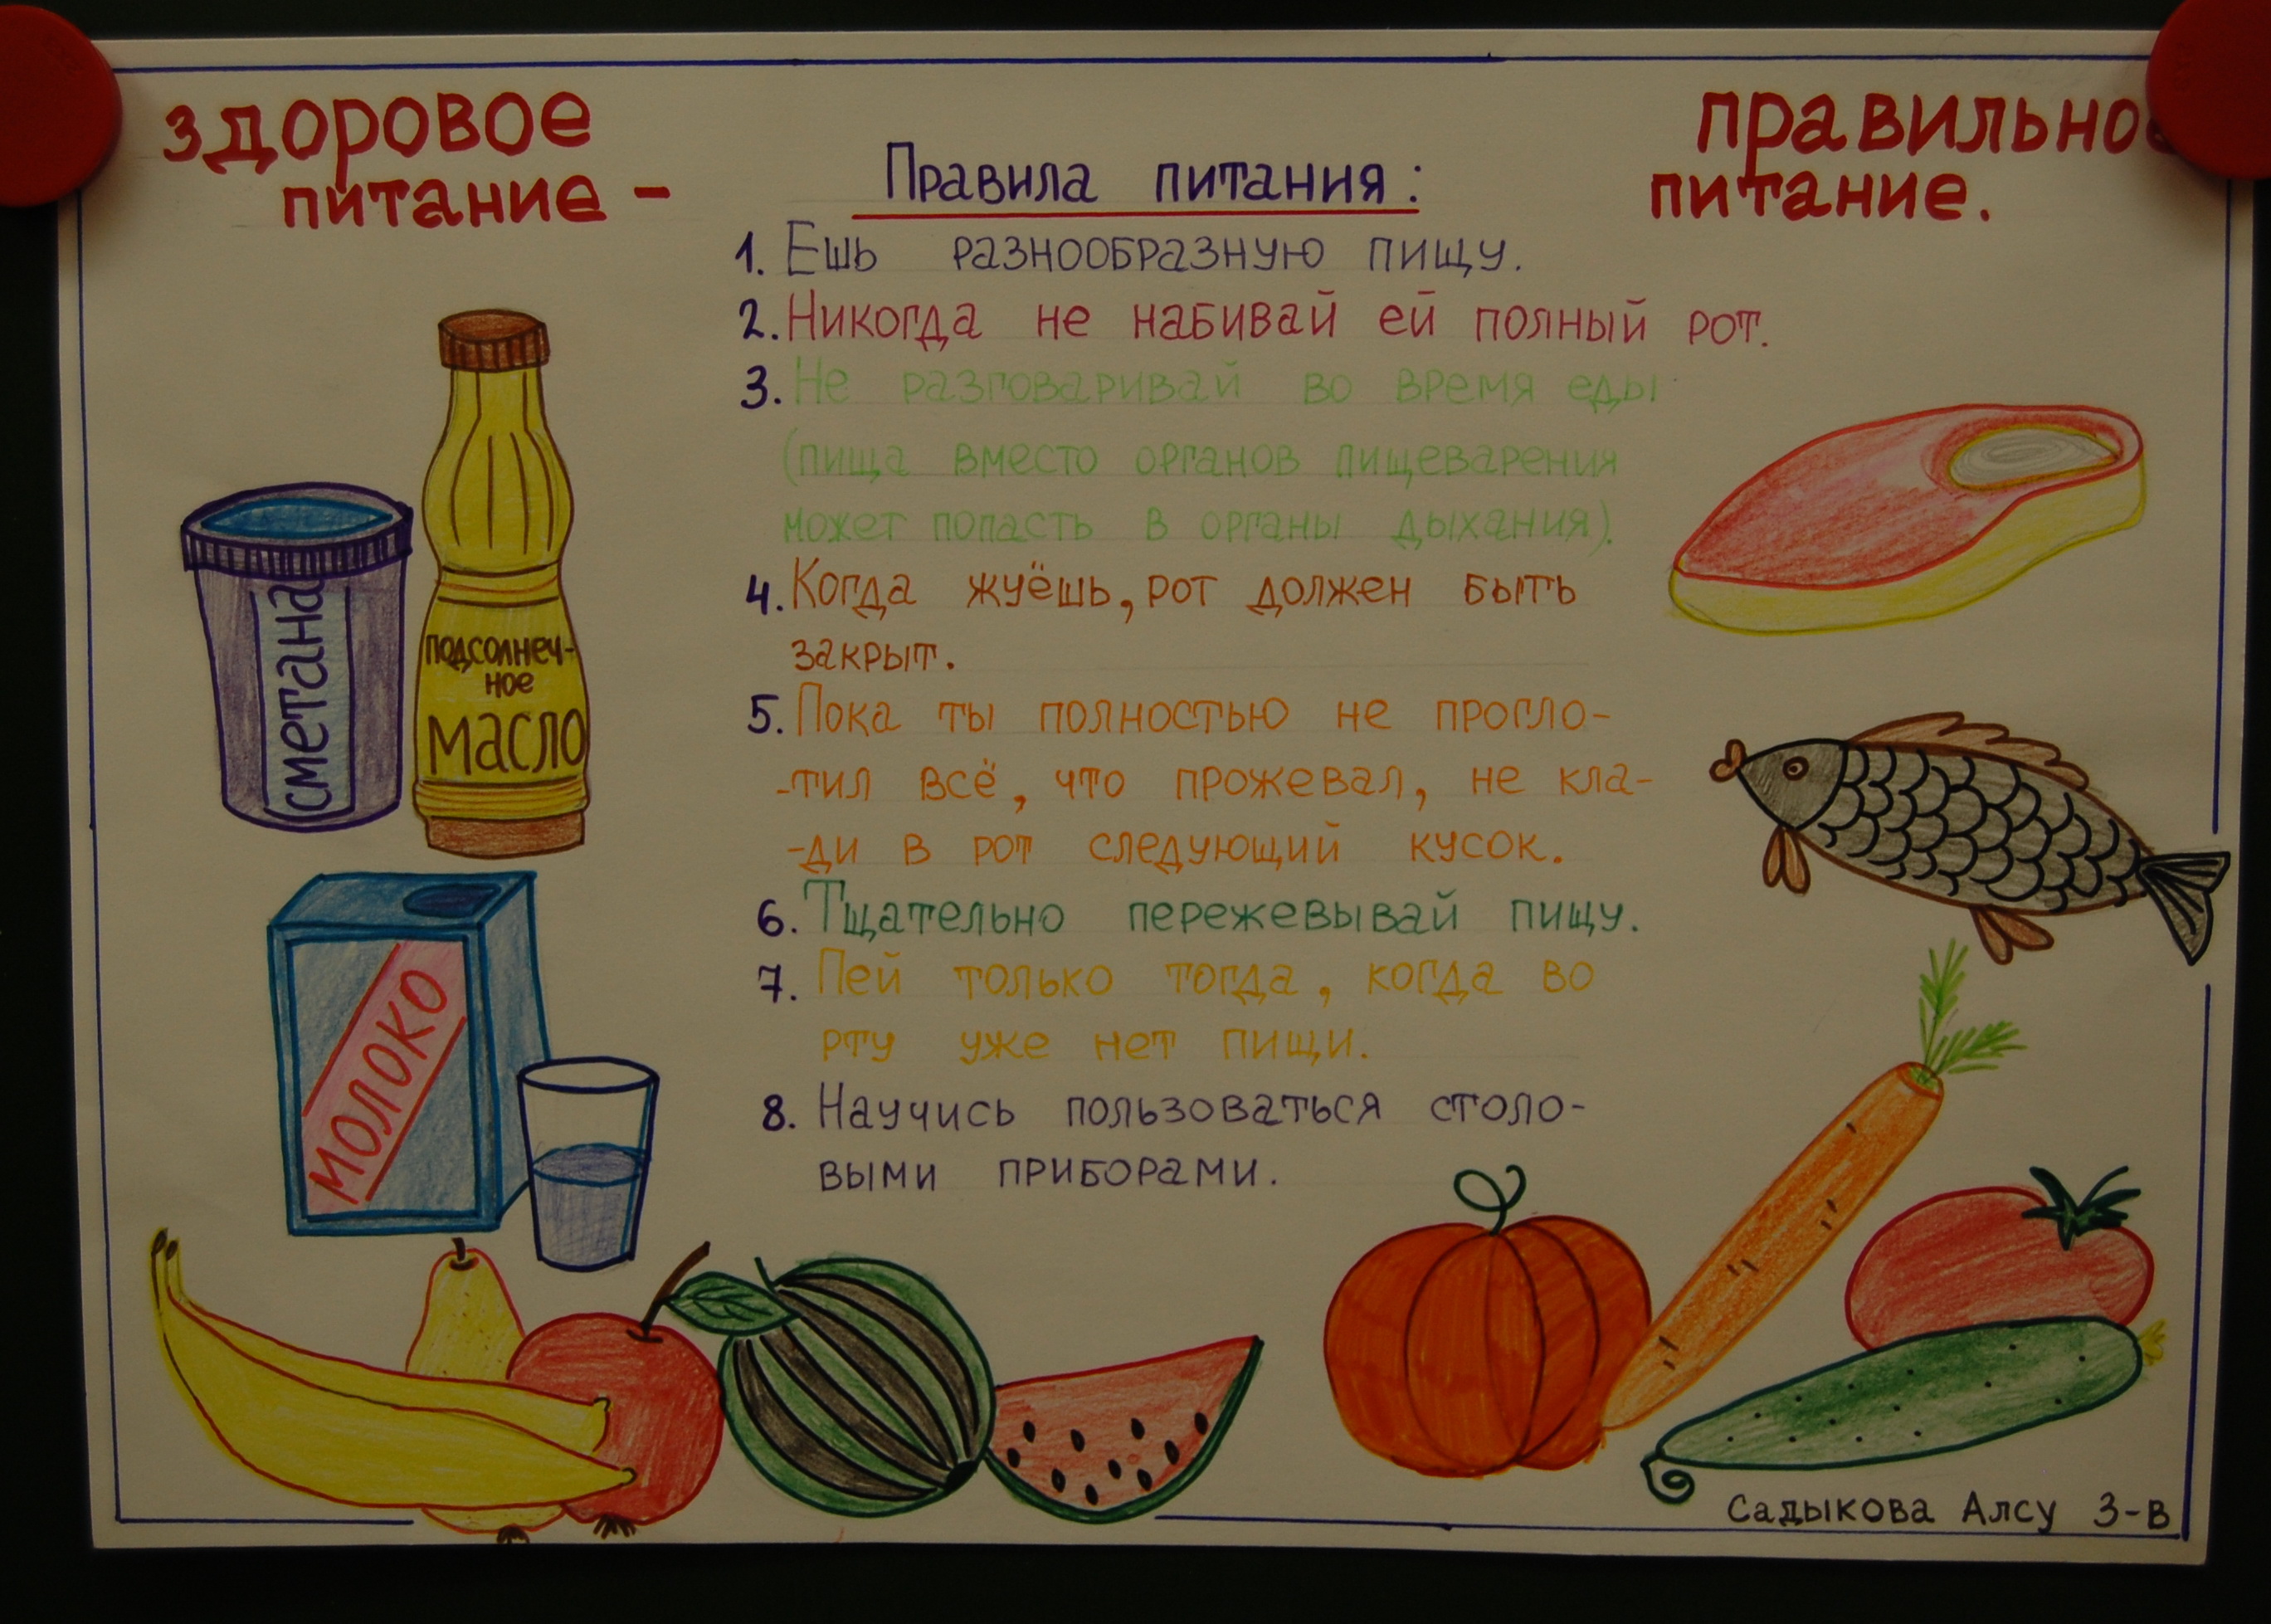 здоровое
питание -
правильно
питание.
Правила питания:
1. Ешь разнообразную пищу.
2. Никогда не набивай ей полный рот.
3. Не разговаривай во время еды
(пища вместо органов пищеварения
может попасть в органы дыхания).
4. Когда жуёшь, рот должен быть
закрыт.
5. Пока ты полностью не прогло-
-тил всё, что прожевал, не кла-
-ди в рот следующий кусок.
6. Тщательно пережевывай пищу.
7. Пей только тогда, когда во
рту уже нет пищи.
8. Научись пользоваться столо-
выми приборами.
сметана
подсолнеч-
ное
масло
молоко
Садыкова Алсу 3-в